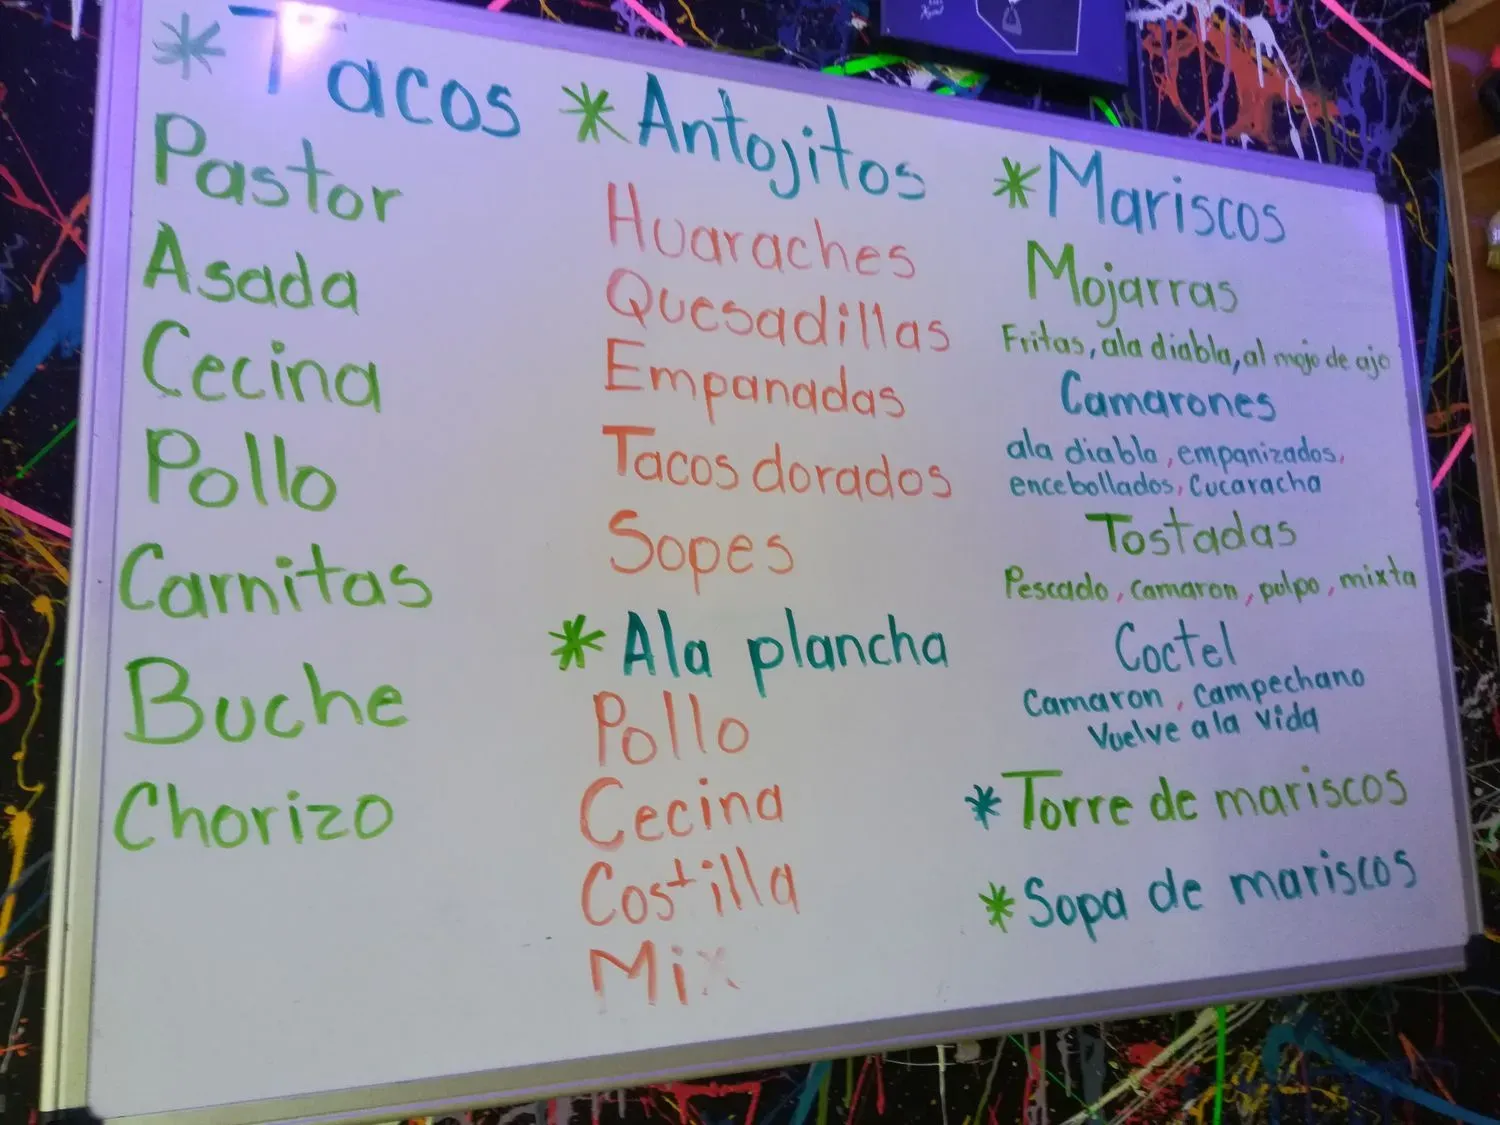 *Tacos
Pastor
Asada
Cecina
Pollo
Carnitas
Buche
Chorizo
*Antojitos
Huaraches
Quesadillas
Empanadas
Tacos dorados
Sopes
*Ala plancha
Pollo
Cecina
Costilla
Mix
*Mariscos
Mojarras
Fritas, ala diabla, al mojo de ajo
Camarones
ala diabla, empanizados,
encebollados, Cucaracha
Tostadas
Pescado, camaron, pulpo, mixta
Coctel
Camaron, Campechano
Vuelve ala vida
*Torre de mariscos
*Sopa de mariscos